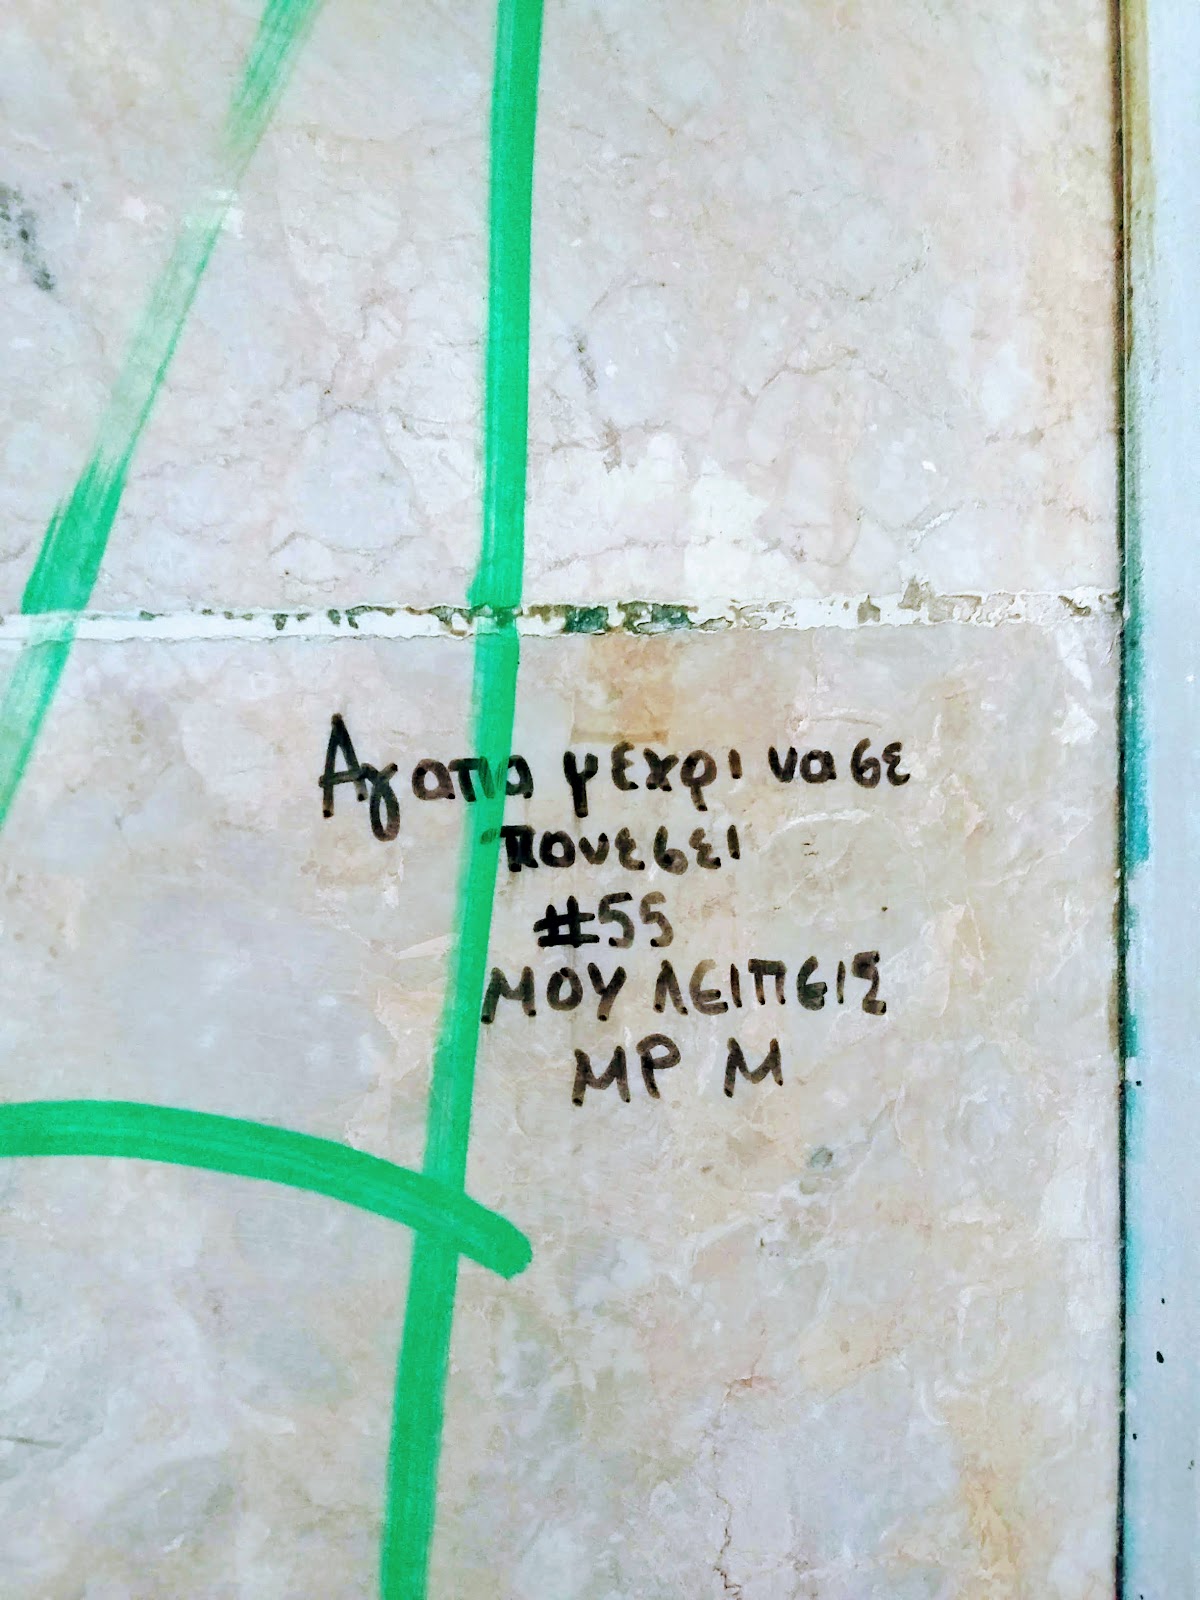 Αγαπα μεχρι να σε
πονεσει
#55
ΜΟΥ ΛΕΙΠΕΙΣ
ΜΡ Μ